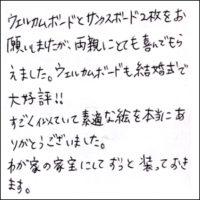 ウェルカムボードとサンクスボード2枚をお
願いしましたが、両親にとても喜んでもら
えました。ウェルカムボードも結婚式で
大好評!!
すごく似ていて素適な絵を本当にあ
りがとうございました。
わが家の家宝にしてずっと装っておき
ます。